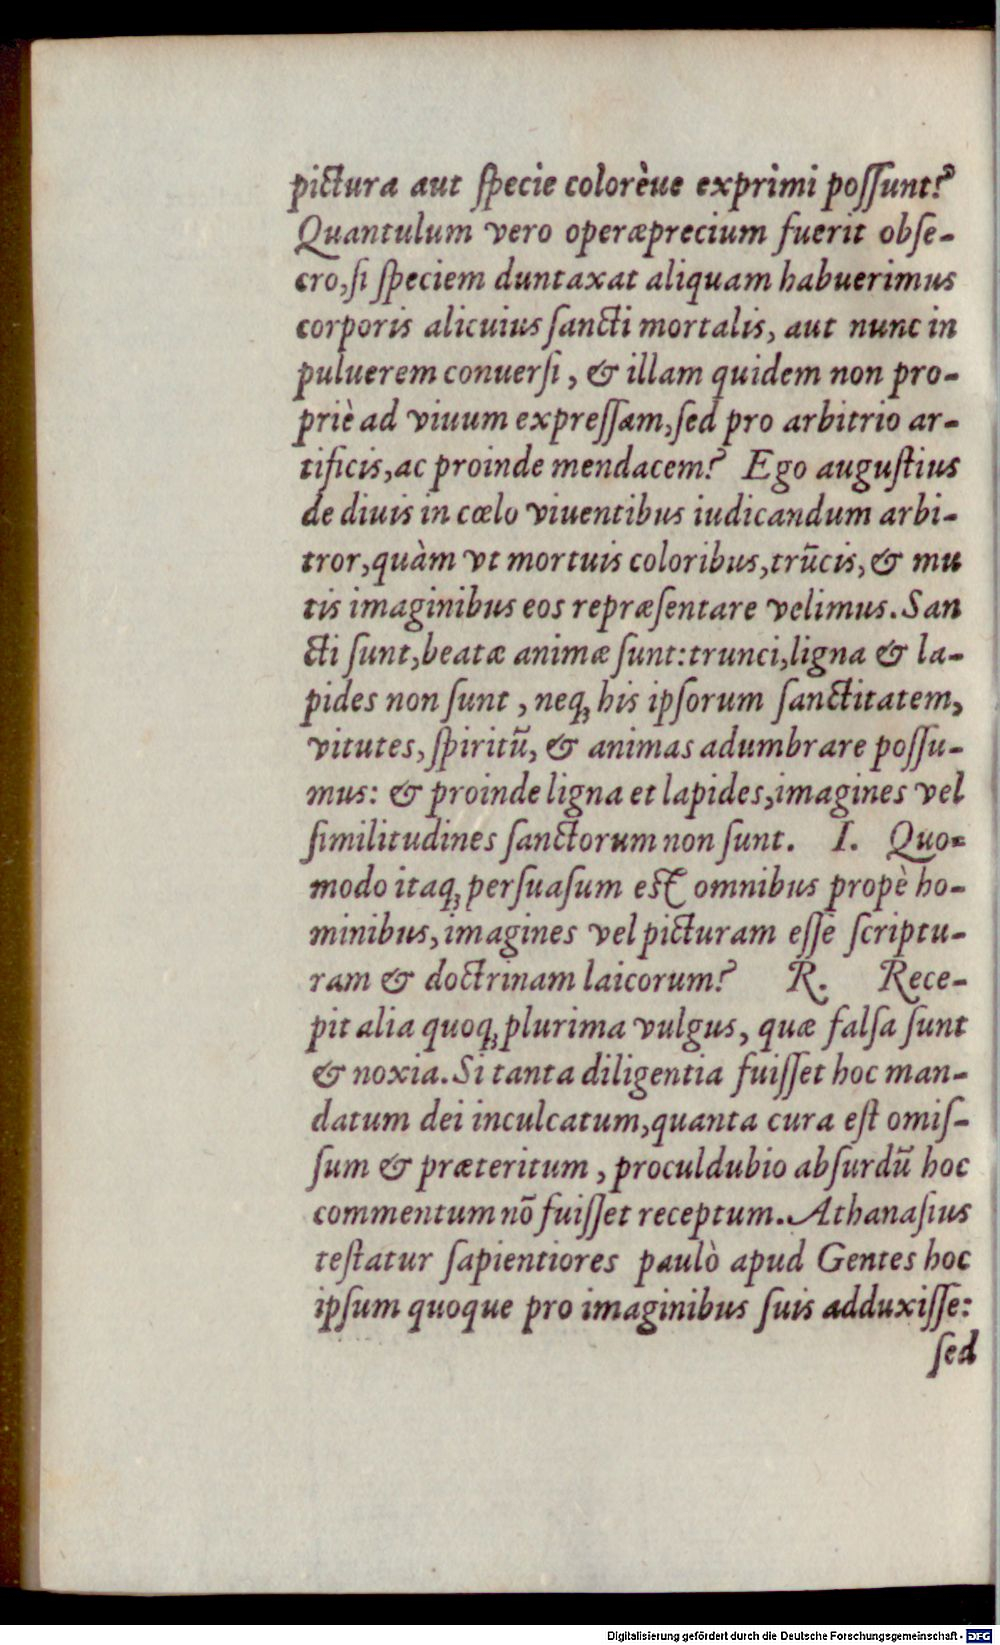 pictura aut ſpecie colorève exprimi poſſunt?
Quantulum vero operæprecium fuerit obſe-
cro,ſi ſpeciem duntaxat aliquam habuerimus
corporis alicuius ſancti mortalis, aut nunc in
puluerem conuerſi, & illam quidem non pro-
priè ad viuum expreſſam,ſed pro arbitrio ar-
tificis,ac proinde mendacem? Ego auguſtius
de diuis in cœlo viuentibus iudicandum arbi-
tror,quàm vt mortuis coloribus,trūcis,& mu
tis imaginibus eos repræſentare velimus. San
cti ſunt,beatæ animæ ſunt:trunci,ligna & la-
pides non ſunt, neqꝫ his ipſorum ſanctitatem,
vitutes, ſpiritū, & animas adumbrare poſſu-
mus: & proinde ligna et lapides,imagines vel
ſimilitudines ſanctorum non ſunt. I. Quo-
modo itaqꝫ perſuaſum eſt omnibus propè ho-
minibus,imagines vel picturam eſſe ſcriptu-
ram & doctrinam laicorum? R. Rece-
pit alia quoqꝫ plurima vulgus, quæ falſa ſunt
& noxia. Si tanta diligentia fuiſſet hoc man-
datum dei inculcatum,quanta cura eſt omiſ-
ſum & præteritum, proculdubio abſurdū hoc
commentum nō fuiſſet receptum. Athanaſius
teſtatur ſapientiores paulò apud Gentes hoc
ipſum quoque pro imaginibus ſuis adduxiſſe:
ſed
Digitalisierung gefördert durch die Deutsche Forschungsgemeinschaft - DFG